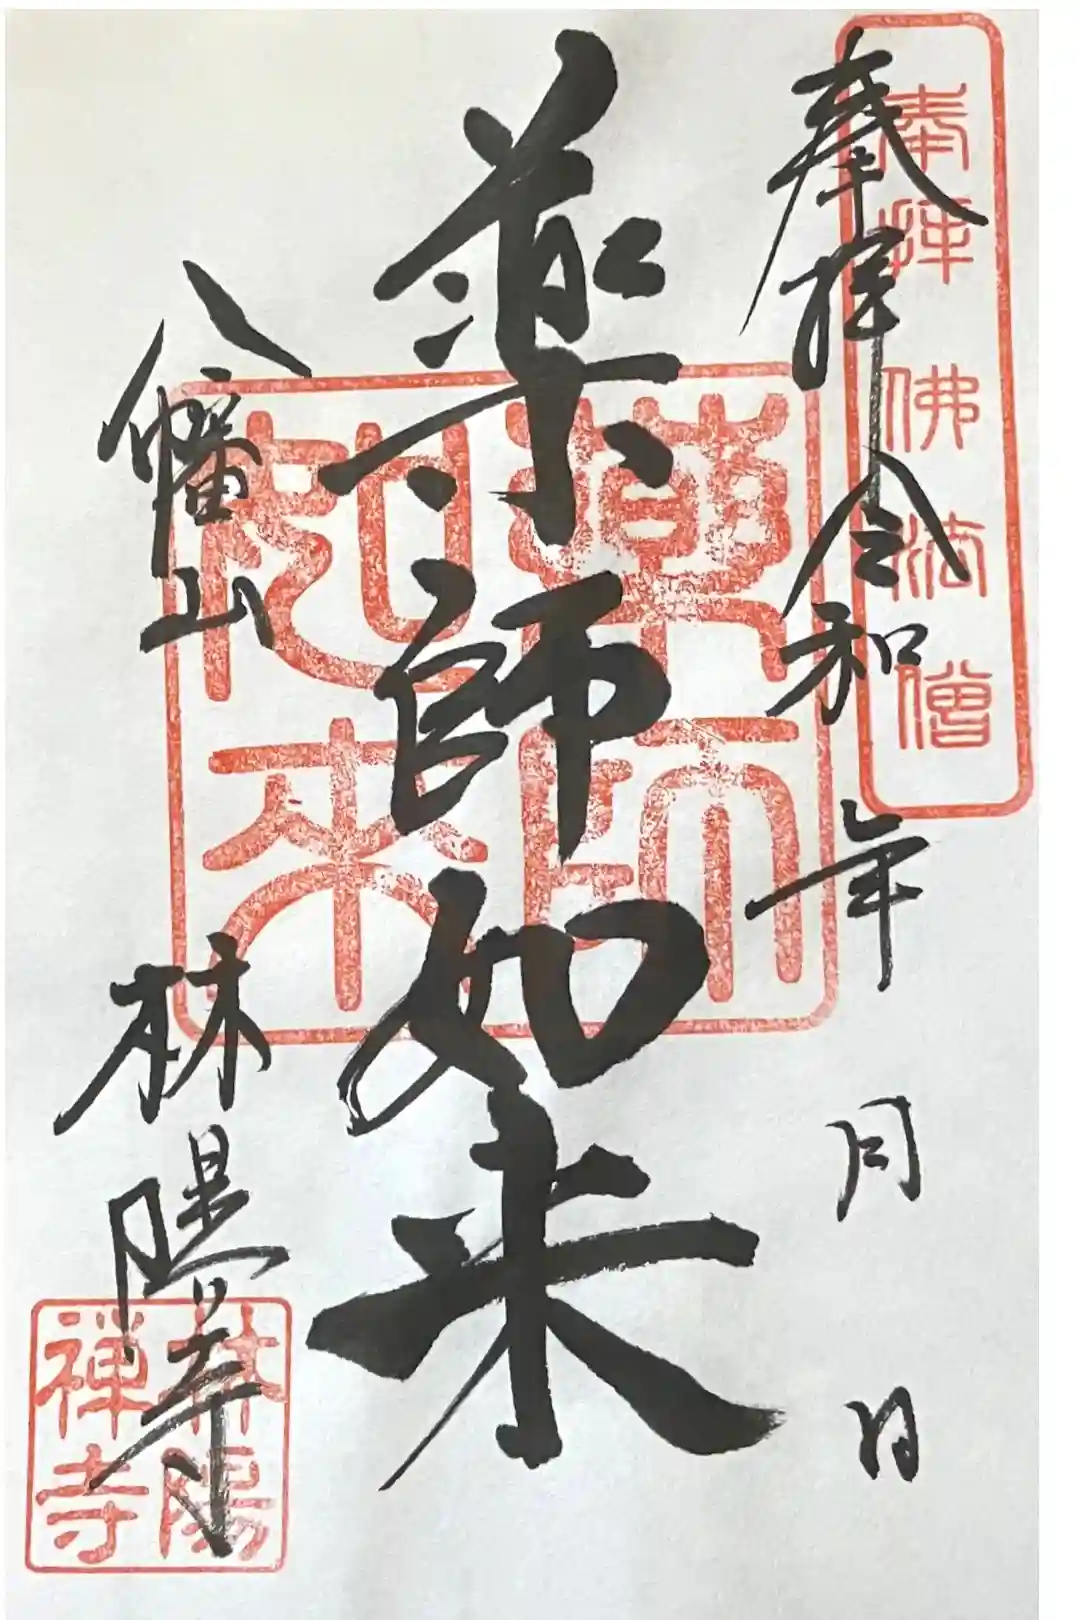 奉拝 令和 年 月 日
奉拝 佛法僧
薬師如来
薬師如来
八幡山
林陽寺
林陽禅寺